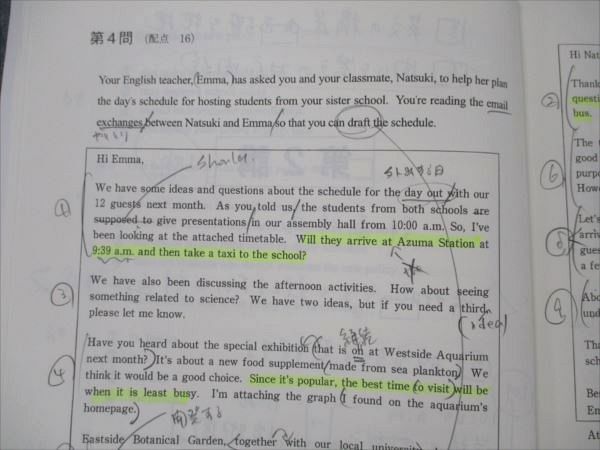 第4問 (配点 16)
Your English teacher, Emma, has asked you and your classmate, Natsuki, to help her plan
the day's schedule for hosting students from your sister school. You're reading the email
exchanges between Natsuki and Emma so that you can draft the schedule.
Hi Emma,
We have some ideas and questions about the schedule for the day out with our
12 guests next month. As you told us, the students from both schools are
supposed to give presentations in our assembly hall from 10:00 a.m. So, I've
been looking at the attached timetable. Will they arrive at Azuma Station at
9:39 a.m. and then take a taxi to the school?
We have also been discussing the afternoon activities. How about seeing
something related to science? We have two ideas, but if you need a third,
please let me know.
(idea)
Have you heard about the special exhibition that is on at Westside Aquarium
next month? It's about a new food supplement made from sea plankton. We
think it would be a good choice. Since it's popular, the best time to visit will be
when it is least busy. I'm attaching the graph I found on the aquarium's
homepage.
Eastside Botanical Garden, together with our local university
①
③
④
Hi Nat
Thank
questi
bus.
The
good
purpo
How
Let's
arriv
gues
a fe
Abo
und
Tha
sch
Bes
Em
At
②
⑥